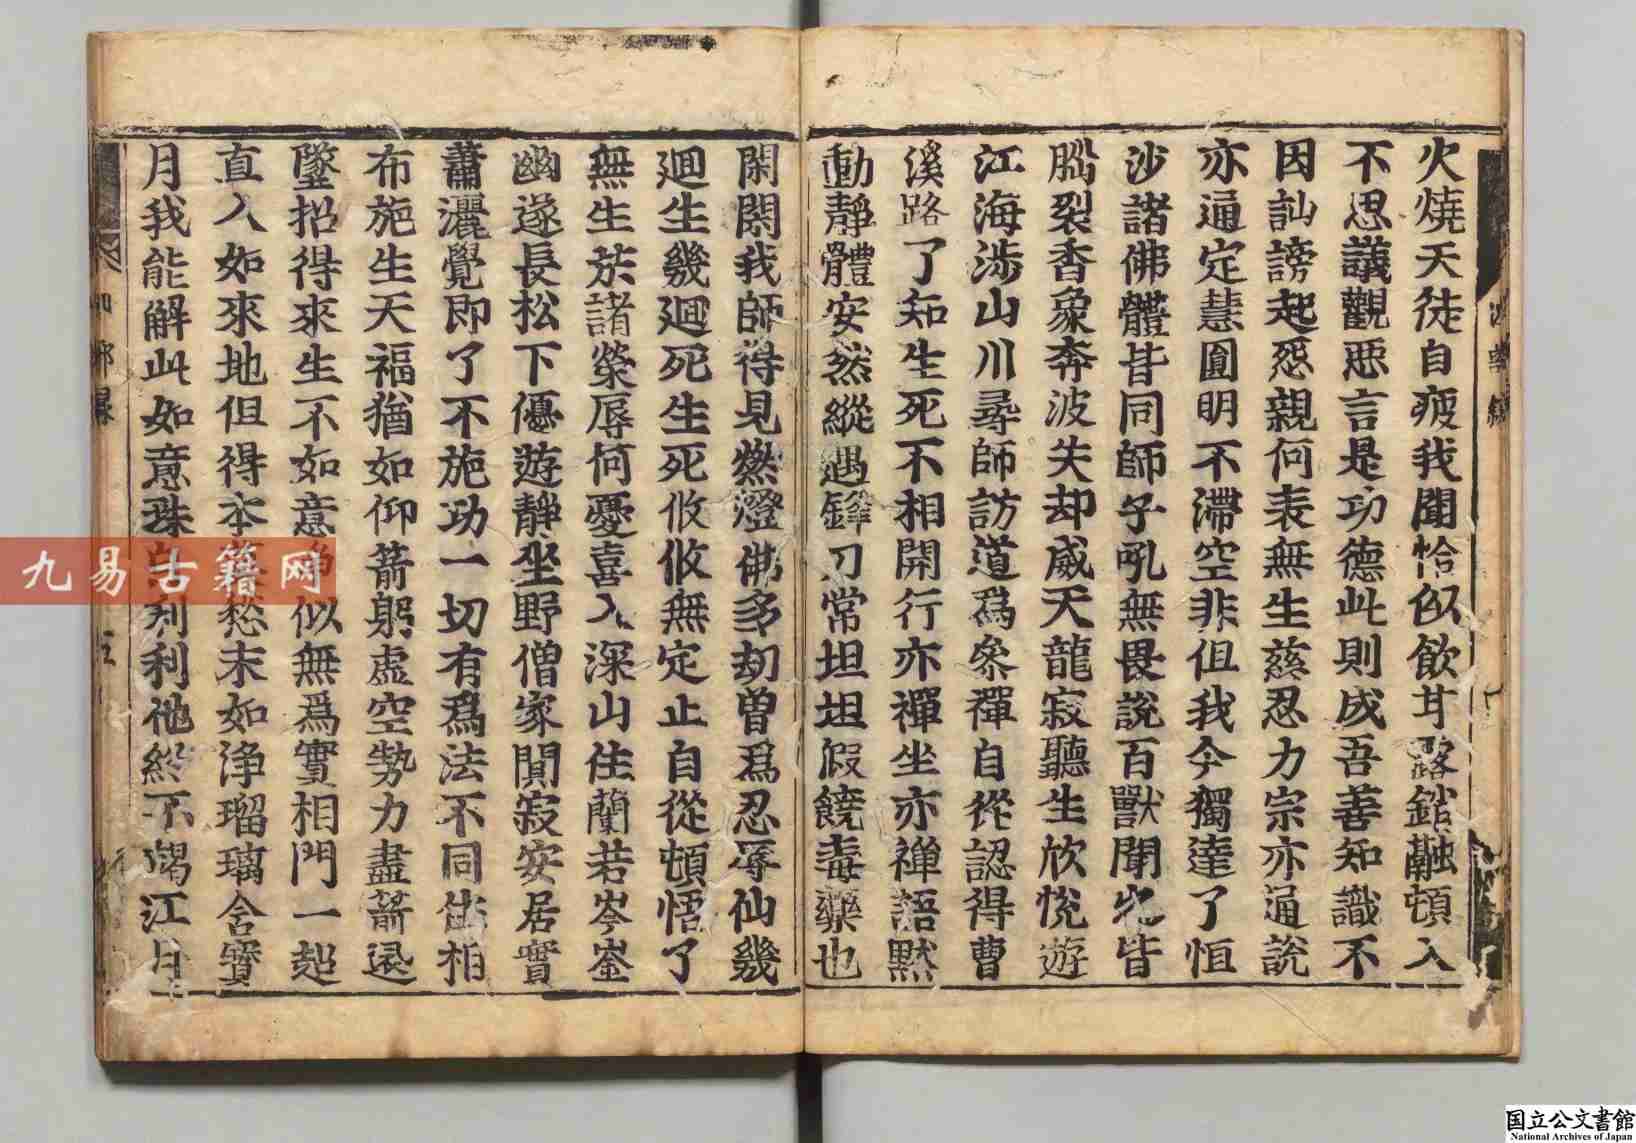 火燒天徒自疲我聞恰似飲甘露銷融頓入
不思議觀惡言是功德此則成吾善知識不
因訕謗起怨親何表無生慈忍力宗亦通說
亦通定慧圓明不滯空非但我今獨達了恒
沙諸佛體皆同師子吼無畏說百獸聞之皆
腦裂香象奔波失却威天龍寂聽生欣悅遊
江海涉山川尋師訪道爲參禪自從認得曹
溪路了知生死不相開行亦禪坐亦禅語默
動靜體安然縱遇鋒刀常坦坦假饒毒藥也
閑閑我師得見燃燈佛多劫曾爲忍辱仙幾
廻生幾廻死生死攸攸無定止自從頓悟了
無生於諸榮辱何憂喜入深山住蘭若岑崟
幽邃長松下優遊静坐野僧家闃寂安居實
蕭灑覺即了不施功一切有爲法不同住相
布施生天福猶如仰箭躬虛空勢力盡箭還
墜招得來生不如意爭似無爲實相門一超
直入如來地但得本愁末如淨瑠璃含寶
月我能解此如意珠自利利他終不竭江月
九易古籍网
国立公文書館
National Archives of Japan